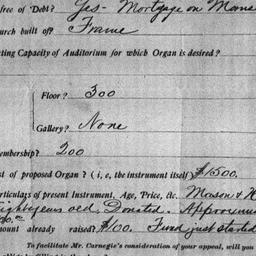 free of Debt? Yes - Mortgage on Manse
urch built of? Frame
ting Capacity of Auditorium for which Organ is desired?
Floor? 300
Gallery? None
embership? 200
st of proposed Organ? ( i, e, the instrument itself) $1500.
articulars of present Instrument, Age, Price, &c. Mason & H
Eight years old. Donated.
mount already raised? $100. Fund just started
To facilitate Mr. Carnegie's consideration of your appeal, will you